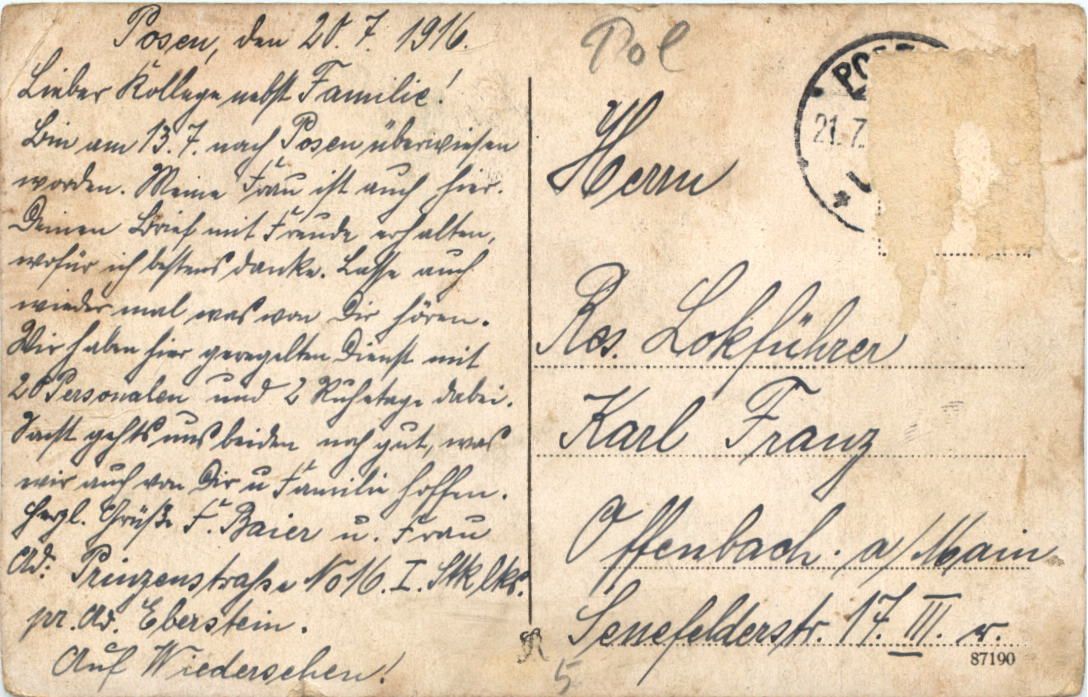 Posen, den 20. 7. 1916.
Lieber Kollege nebst Familie!
Bin am 13. 7. nach Posen überwiesen
worden. Meine Frau ist auch hier.
Deinen Brief mit Freude erhalten,
wofür ich bestens danke. Lasse auch
wieder mal was von Dir hören.
Wir haben hier geregelten Dienst mit
20 Personalen und 2 Ruhetage dabei.
Sonst gehts uns beiden noch gut, was
wir auch von Dir u Familie hoffen.
Herzl. Grüße F. Baier u. Frau
Ad. Prinzenstraße No 16. I. Stk lks.
pr. Ad. Eberstein.
Auf Wiedersehen!
Pol
21. 7.
Herrn
Res. Lokführer
Karl Franz
Offenbach. a/Main
Senefelderstr. 17. III. r.
87190
5